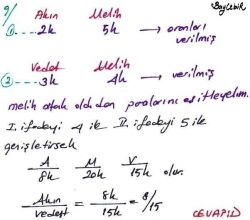 9/ Akın Melih Baycebik
① 2k 5k → oranları verilmiş
Vedat Melih
② 3k 4k → verilmiş
melih ortak olduğundan paralarını eşitleyelim.
I. ifadeyi 4 ile II. ifadeyi 5 ile
genişletirsek
A M V
8k 20k 15k olur.
Akın/vedat = 8k/15k = 8/15
CEVAP: D